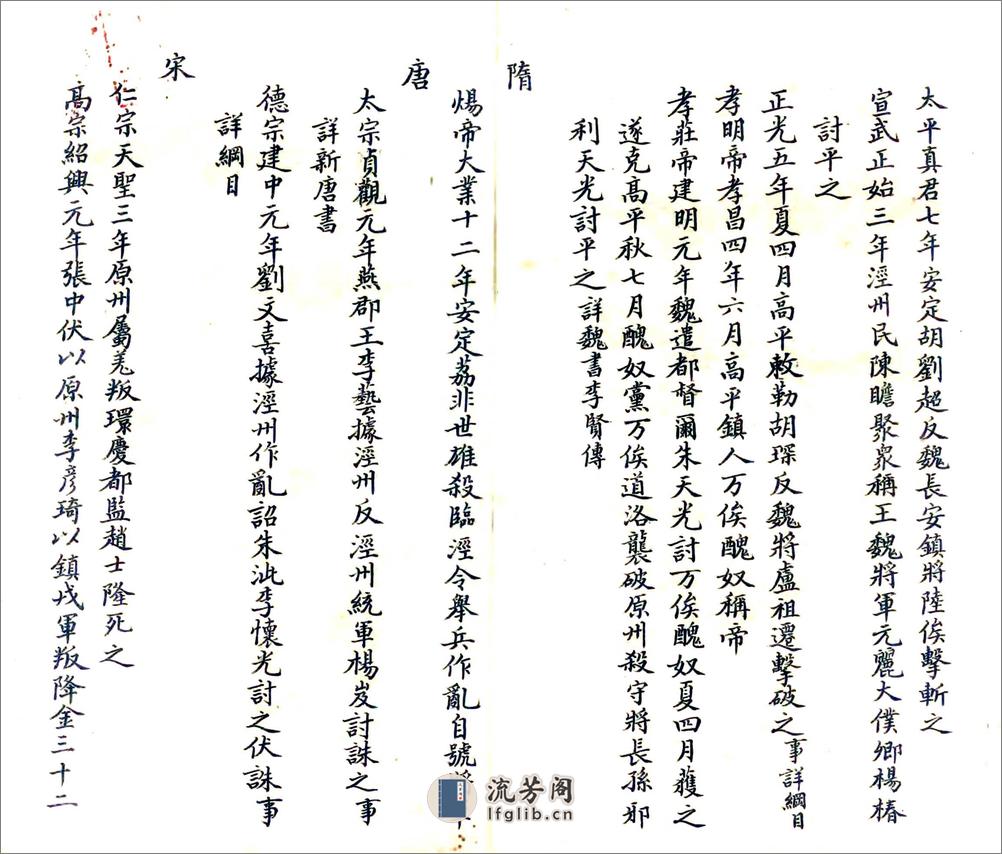 太平真君七年安定胡劉超反魏長安鎮將陸俟擊斬之
宣武正始三年涇州民陳瞻聚衆稱王魏將軍元麗大僕卿楊椿
討平之
正光五年夏四月高平敕勒胡琛反魏將盧祖遷擊破之事詳綱目
孝明帝孝昌四年六月高平鎮人万俟醜奴稱帝
孝莊帝建明元年魏遣都督爾朱天光討万俟醜奴夏四月蕕之
遂克高平秋七月醜奴黨万俟道洛襲破原州殺守將長孫邪
利天光討平之詳魏書李賢傳
隋
煬帝大業十二年安定荔非世雄殺臨涇令舉兵作亂自號
唐
太宗貞觀元年燕郡王李藝據涇州反涇州統軍楊岌討誅之事
詳新唐書
德宗建中元年劉文喜據涇州作亂詔朱泚李懷光討之伏誅事
詳綱目
宋
仁宗天聖三年原州屬羌叛環慶都監趙士隆死之
高宗紹興元年張中伏以原州李彦琦以鎮戎軍叛降金三十二
流芳阁
lfglib.cn